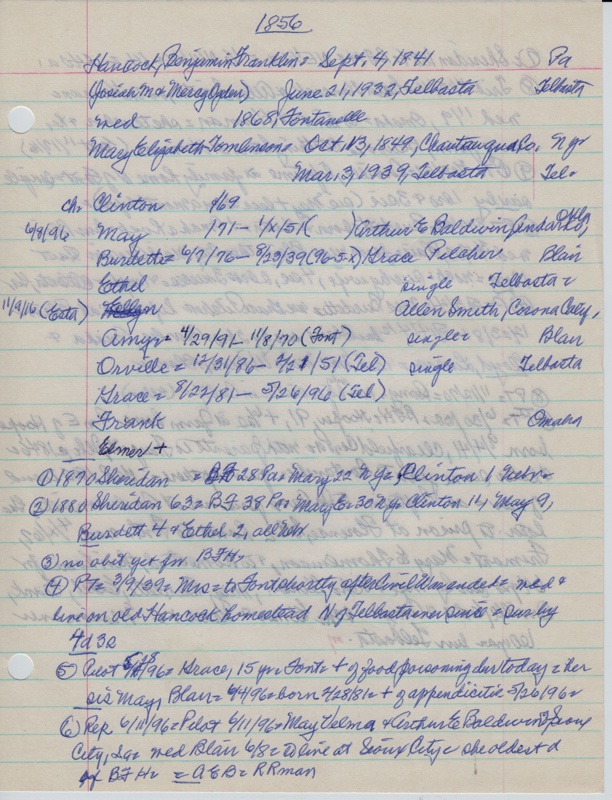 1856
Hancock, Benjamin Franklin = Sept. 4, 1841 Pa
(Josiah M & Mercy Ogden) June 21, 1932, Telbasta Telbasta
wed 1868, Fontanelle
Mary Elizabeth Tomlinson = Oct. 13, 1849, Chautauqua Co, N.Y.
Mar. 3, 1939, Telbasta Tel=
ch = Clinton 1869
6/8/96 May 1871 - 1/x/51( ) Arthur E Baldwin, Anadarko, Okla
Burdette = 6/7/76 - 8/23/39 Grace Pilcher Blair
Ethel single Telbasta =
11/9/16 (Esta) Allen Smith, Corona Caty,
Amy = 4/29/91 - 11/8/70 (Font) single = Blair
Orville = 12/31/86 - /51 (Tel) single Telbasta
Grace = 8/22/81 - 5/26/96 (Tel)
Frank Omaha
Elmer +
① 1870 Sheridan = BF 28 Pa = Mary 22 N.Y. = Clinton 1 Nebr =
② 1880 Sheridan 63 = BF 38 Pa = Mary E = 30 N.Y. Clinton 11, May 9,
Burdett 4 & Ethel 2, all Neb
③ no obit yet for BFH =
④ PT = 3/9/39 = Mrs = to Font shortly after Civil War ended = wed &
live on old Hancock homestead N of Telbasta ever since = surv by
4d 3s
⑤ Pilot 96 = Grace, 15 yr = Font = + of food poisoning due today = her
sis May, Blair = 6/4/96 = born 4/28/81 = + of appendicitis = 5/26/96 =
⑥ Rep 6/11/96 = Pilot 6/11/96 = May Velma & Arthur E Baldwin of Sioux
City, Ia = wed Blair 6/8 = to live at Sioux City = she oldest d
of BFH = = AEB = RRman